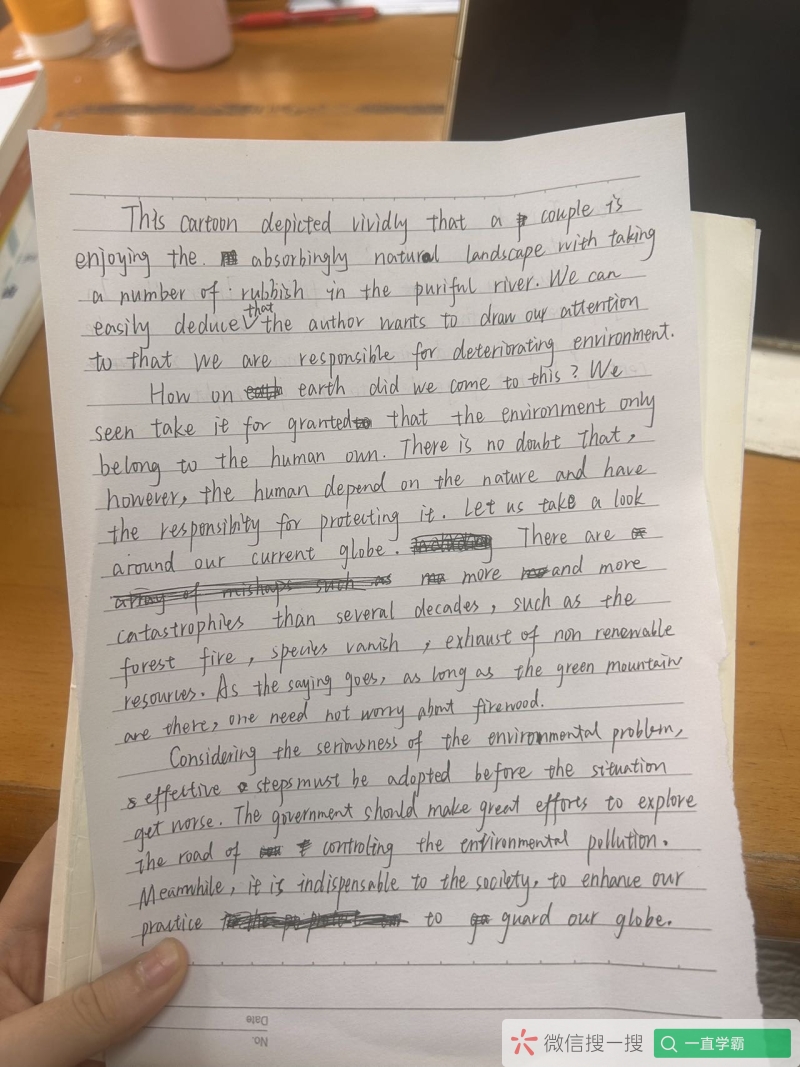 This cartoon depicted vividly that a couple is
enjoying the absorbingly natural landscape with taking
a number of rubbish in the puriful river. We can
easily deduce that the author wants to draw our attention
to that we are responsible for deteriorating environment.
How on earth did we come to this? We
seen take it for granted that the environment only
belong to the human own. There is no doubt that,
however, the human depend on the nature and have
the responsibity for protecting it. Let us take a look
around our current globe. There are
more and more
catastrophies than several decades, such as the
forest fire, species vanish, exhaust of non renewable
resources. As the saying goes, as long as the green mountain
are there, one need not worry about firewood.
Considering the seriousness of the environmental problem,
effective steps must be adopted before the situation
get worse. The government should make great efforts to explore
the road of controling the environmental pollution.
Meanwhile, it is indispensable to the society, to enhance our
practice to guard our globe.
Date
No.
微信搜一搜
一直学霸